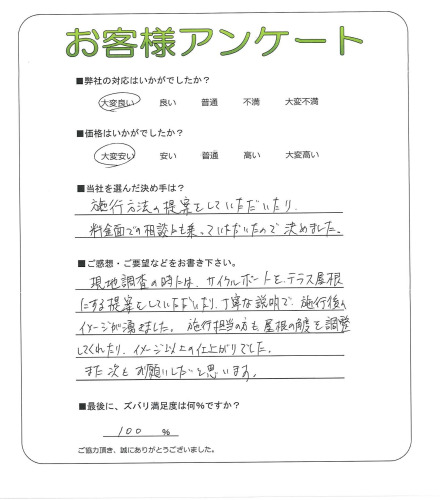 お客様アンケート
■弊社の対応はいかがでしたか？
大変良い 良い 普通 不満 大変不満
■価格はいかがでしたか？
大変安い 安い 普通 高い 大変高い
■当社を選んだ決め手は？
施行方法の提案をしていただいたり、
料金面での相談にも乗っていただいたので決めました。
■ご感想・ご要望などをお書き下さい。
現地調査の時には、サイクルポートを、テラス屋根
にする提案をしていただいたり、丁寧な説明で、施行後の
イメージが湧きました。施行担当の方も、屋根の角度を調整
してくれたり、イメージ以上の仕上がりでした。
また次もお願いしたいと思います。
■最後に、ズバリ満足度は何%ですか？
100 %
ご協力頂き、誠にありがとうございました。